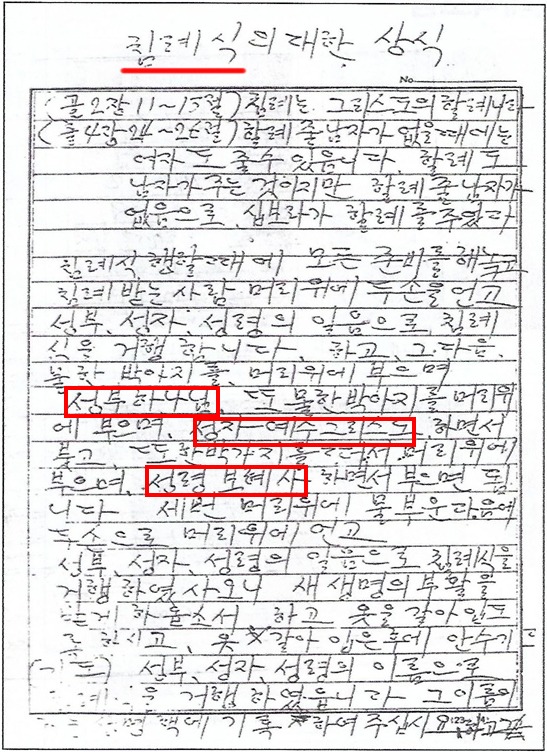 침례식의대한 상식
No.
(골2장11~15절) 침례는 그리스도의 할례니라
(출4장24~26절) 할례 줄남자가 없을때에는
여자도 줄수 있읍니다. 할례도
남자가 주는것이지만 할례 줄남자가
없음으로, 십보라가 할례를주었다
침례식 행할때에 모든 준비를해놓고
침례 받는 사람 머리위에 두손을 언고
성부, 성자, 성령의 일음으로, 침례
식을 거행 합니다. 하고, 그다음,
물한 박아지를, 머리위에 부으며
성부하나님, 또 물한박아지를 머리위
에 부으며, 성자 예수그리스도, 하면서
붓고, 또한박가지를 머리위에
부으며, 성령, 보혜사 하면서 부으면 됩
니다 세번 머리위에 물 부은다음에
두손으로 머리위에 언고
성부, 성자, 성령의 일음으로 침례식을
거행하였사오니 새생명의 부활을
하옵소서 하고 옷을 갈아입도
록 하시고, 옷 갈아 입은후에 안수기
(기도) 성부, 성자, 성령의 이름으로
을 거행 하였읍니다 그이름이
생명책에 기록 하여 주십시요